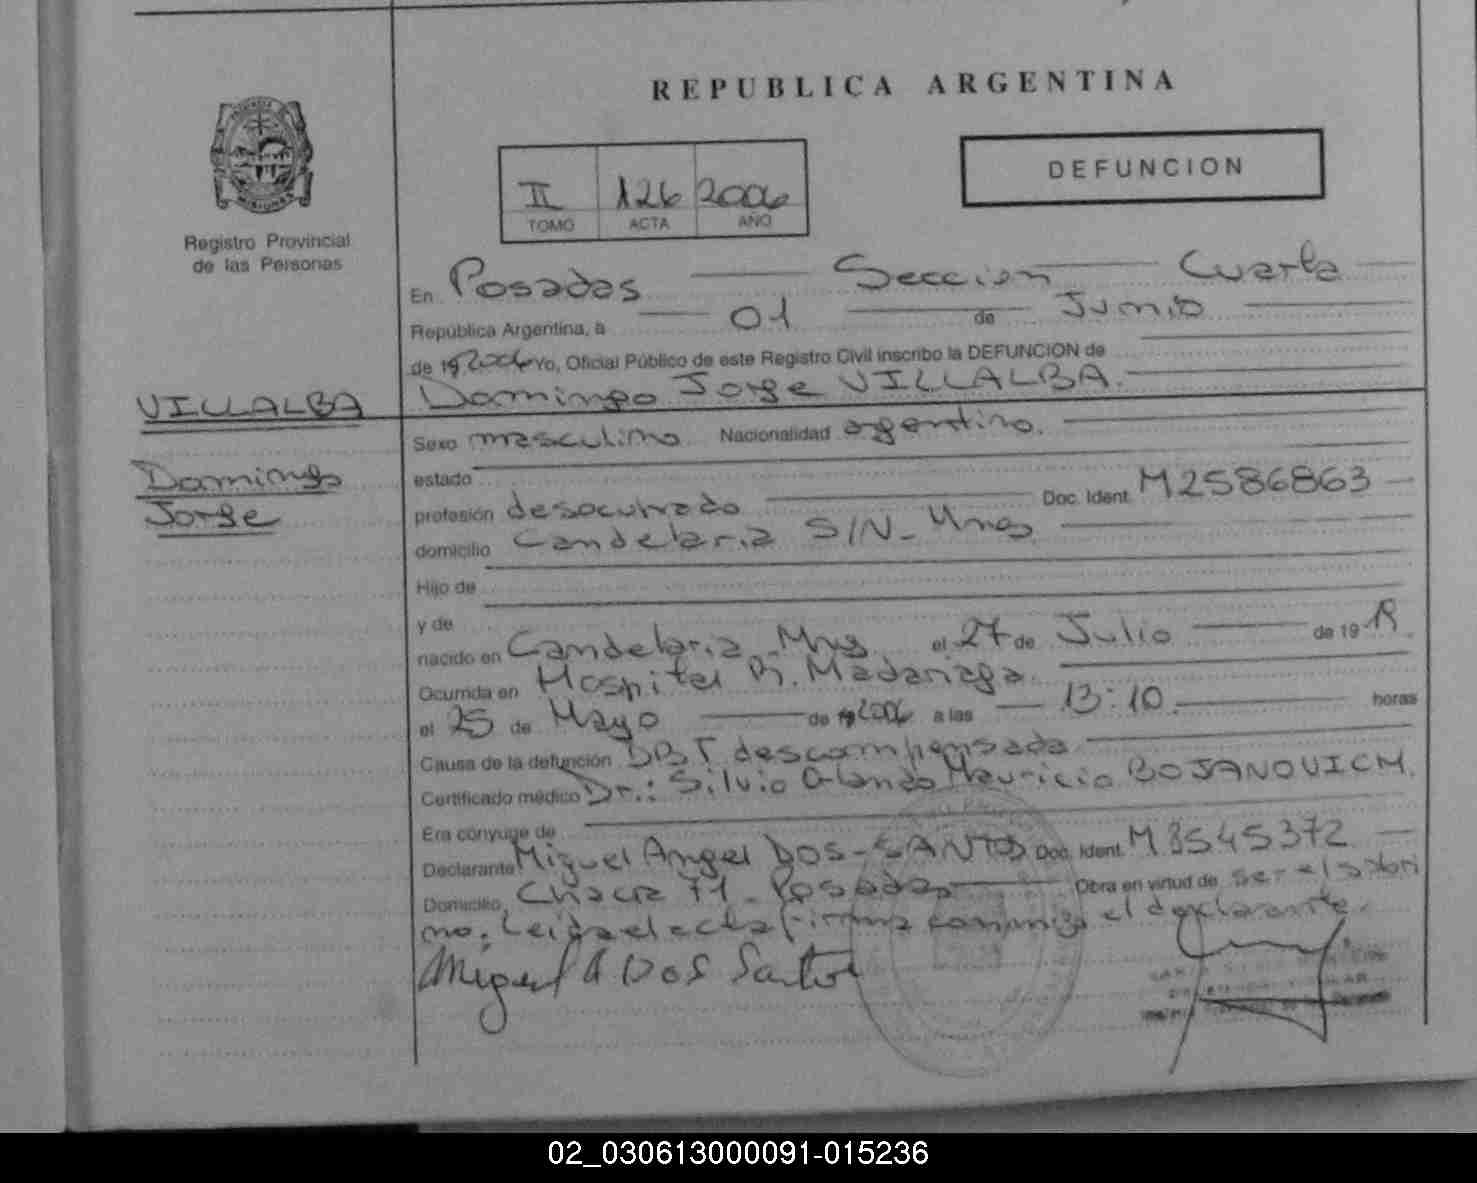 REPUBLICA ARGENTINA
DEFUNCION
II 126 2006
TOMO ACTA AÑO
MISIONES
Registro Provincial
de las Personas
En Posadas Seccion Cuarta
República Argentina, a 01 de Junio
de 19 2006 Yo, Oficial Público de este Registro Civil inscribo la DEFUNCION de
Domingo Jorge VILLALBA.
VILLALBA
Domingo
Jorge
Sexo masculino. Nacionalidad argentino.
estado
profesión desocupado Doc. Ident. M2586863
domicilio Candelaria S/N- Mnes
Hijo de
y de
nacido en Candelaria Mnes el 27 de Julio de 19
Ocurrida en Hospital R. Madariaga
el 25 de Mayo de 19 2006 a las 13:10 horas
Causa de la defunción DBT descompensada
Certificado médico Dr.: Silvio Orlando Mauricio BOJANOVICH.
Era cónyuge de
Declarante Miguel Angel DOS-SANTOS Doc. Ident. M8545372
Domicilio Chacra 71- Posadas Obra en virtud de ser el sobri
no. Leida el acta firma conmigo el declarante.
Miguel A Dos Santos
02_030613000091-015236